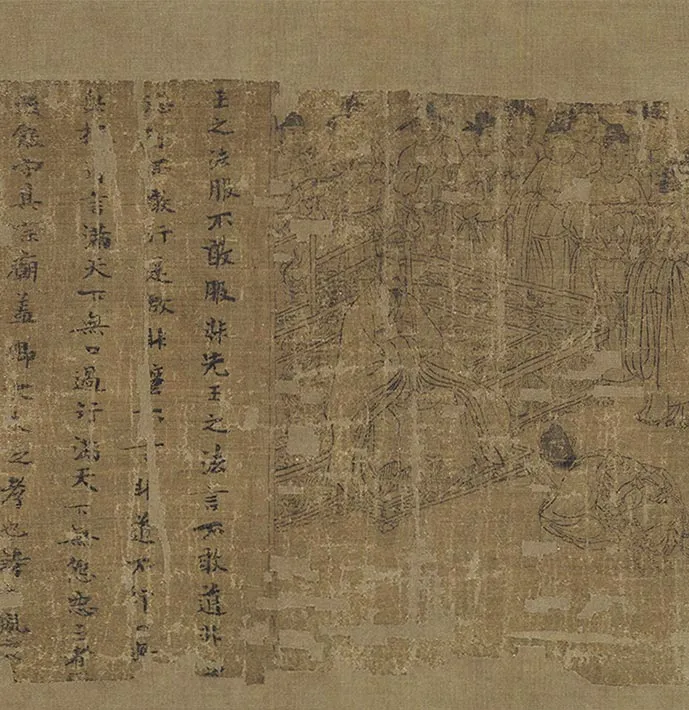 王之法服不敢服非先王之法言不敢道非
不敢行是故非言不非道不行口無
言滿天下無口過行滿天下無怨惡三者
能守其宗廟蓋卿大夫之孝也詩